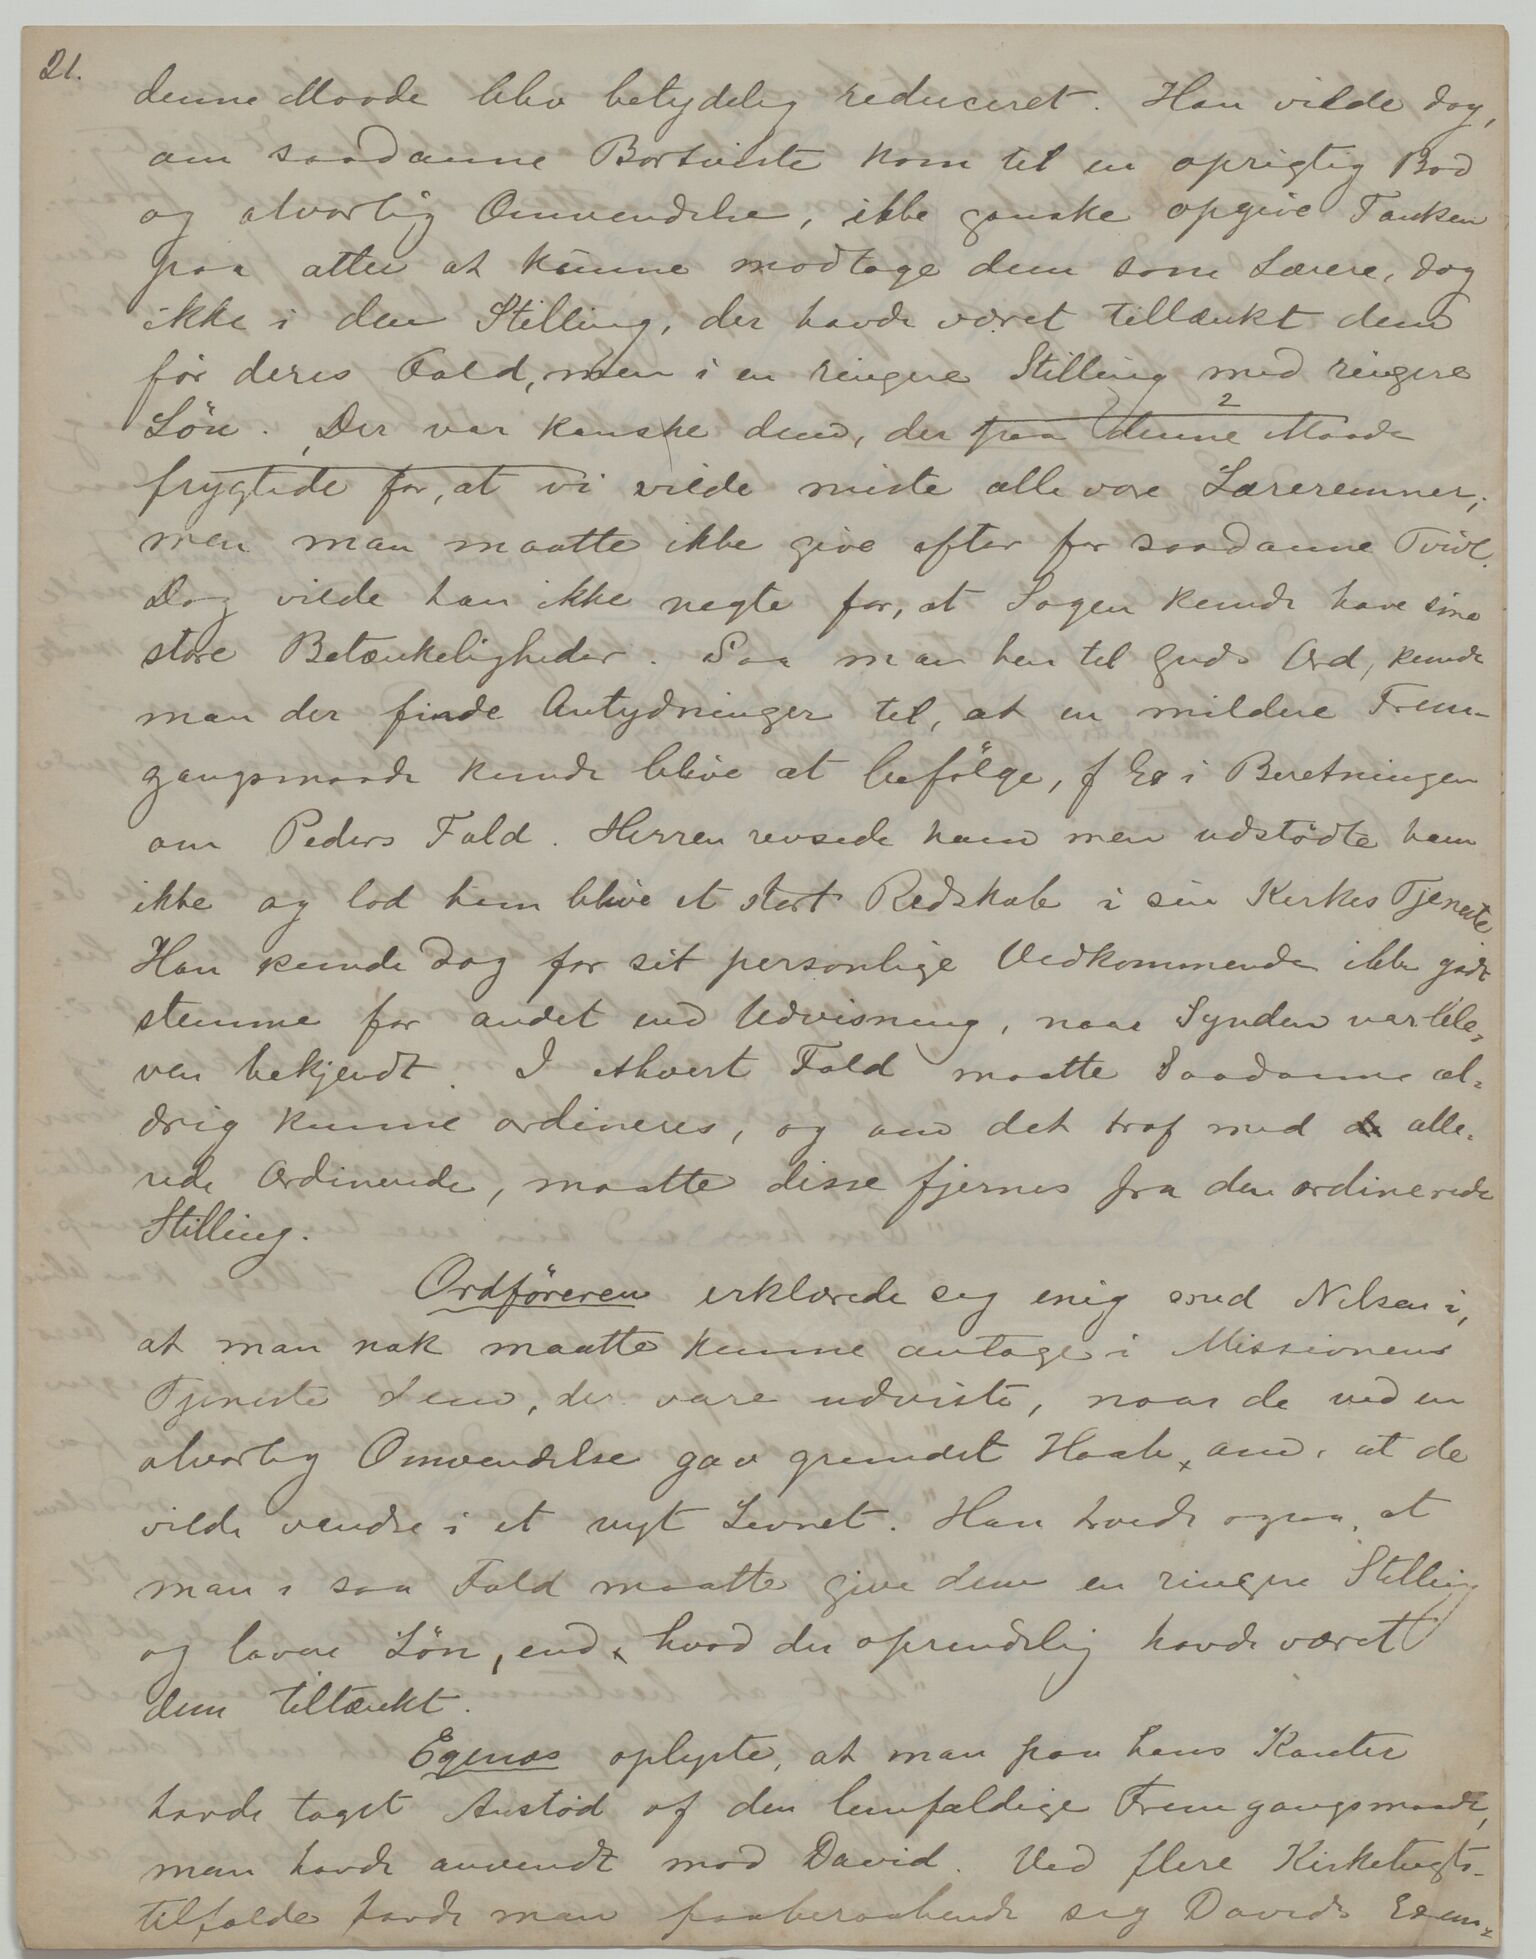 21.
denne Maade blev betydelig reduceret. Han vilde dog,
om saadanne Bortviste kom til en oprigtig Bod
og alvorlig Omvendelse, ikke ganske opgive Tanken
paa atter at kunne modtage dem som Lærere, dog
ikke i den Stilling, der havde været tiltænkt dem
før deres Fald, men i en ringere Stilling med ringere
Løn. Der var kanske dem, der paa denne Maade 2
frygtede for, at vi vilde miste alle vore Læreremner;
men man maatte ikke give efter for saadanne Tvivl.
Dog vilde han ikke negte for, at Sagen kunde have sine
store Betænkeligheder. Saa man hen til Guds Ord, kunde
man der finde Antydninger til, at en mildere Frem-
gangsmaade kunde blive at befølge, f Ex i Beretningen
om Peders Fald. Herren revsede ham men udstødte ham
ikke og lod ham blive et stort Redskab i sin Kirkes Tjeneste
Han kunde dog for sit personlige Vedkommende ikke godt
stemme for andet end Udvisning, naar Synden var ble-
ven bekjendt. I ethvert Fald maatte Saadanne al-
drig kunne ordineres, og om det traf med alle-
rede Ordinerede, maatte disse fjernes fra den ordinerede
Stilling.
Ordføreren erklærede sig enig med Nilsen i,
at man nok maatte kunne antage i Missionens
Tjeneste dem, der vare udviste, naar de ved en
alvorlig Omvendelse gav grundet Haab om, at de
vilde vandre i et nyt Levnet. Han troede ogsaa, at
man i saa Fald maatte give dem en ringere Stilling
og lavere Løn, end hvad der oprindelig havde været
dem tiltænkt.
Egenæs oplyste, at man paa hans Kanter
havde taget Anstød af den lemfældige Fremgangsmaade,
man havde anvendt mod David. Ved flere Kirketugts-
tilfælde havde man paaberaabende sig Davids Exem-